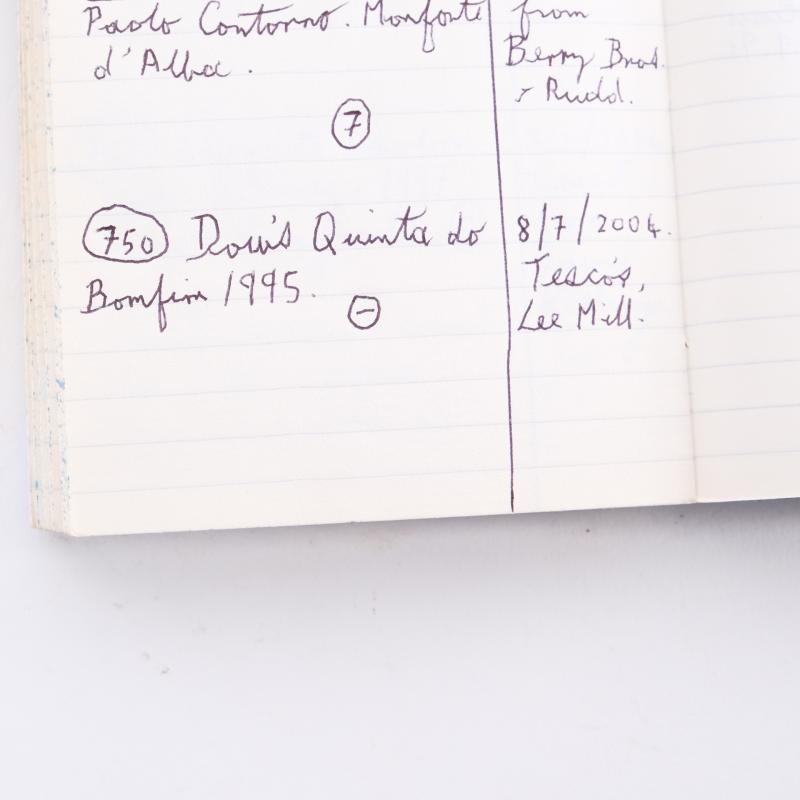 Paolo Contorno. Monforte
d'Alba.
7
from
Berry Bros.
+ Rudd.
750 Dow's Quinta do
Bomfim 1995.
–
8/7/2004.
Tesco's,
Lee Mill.